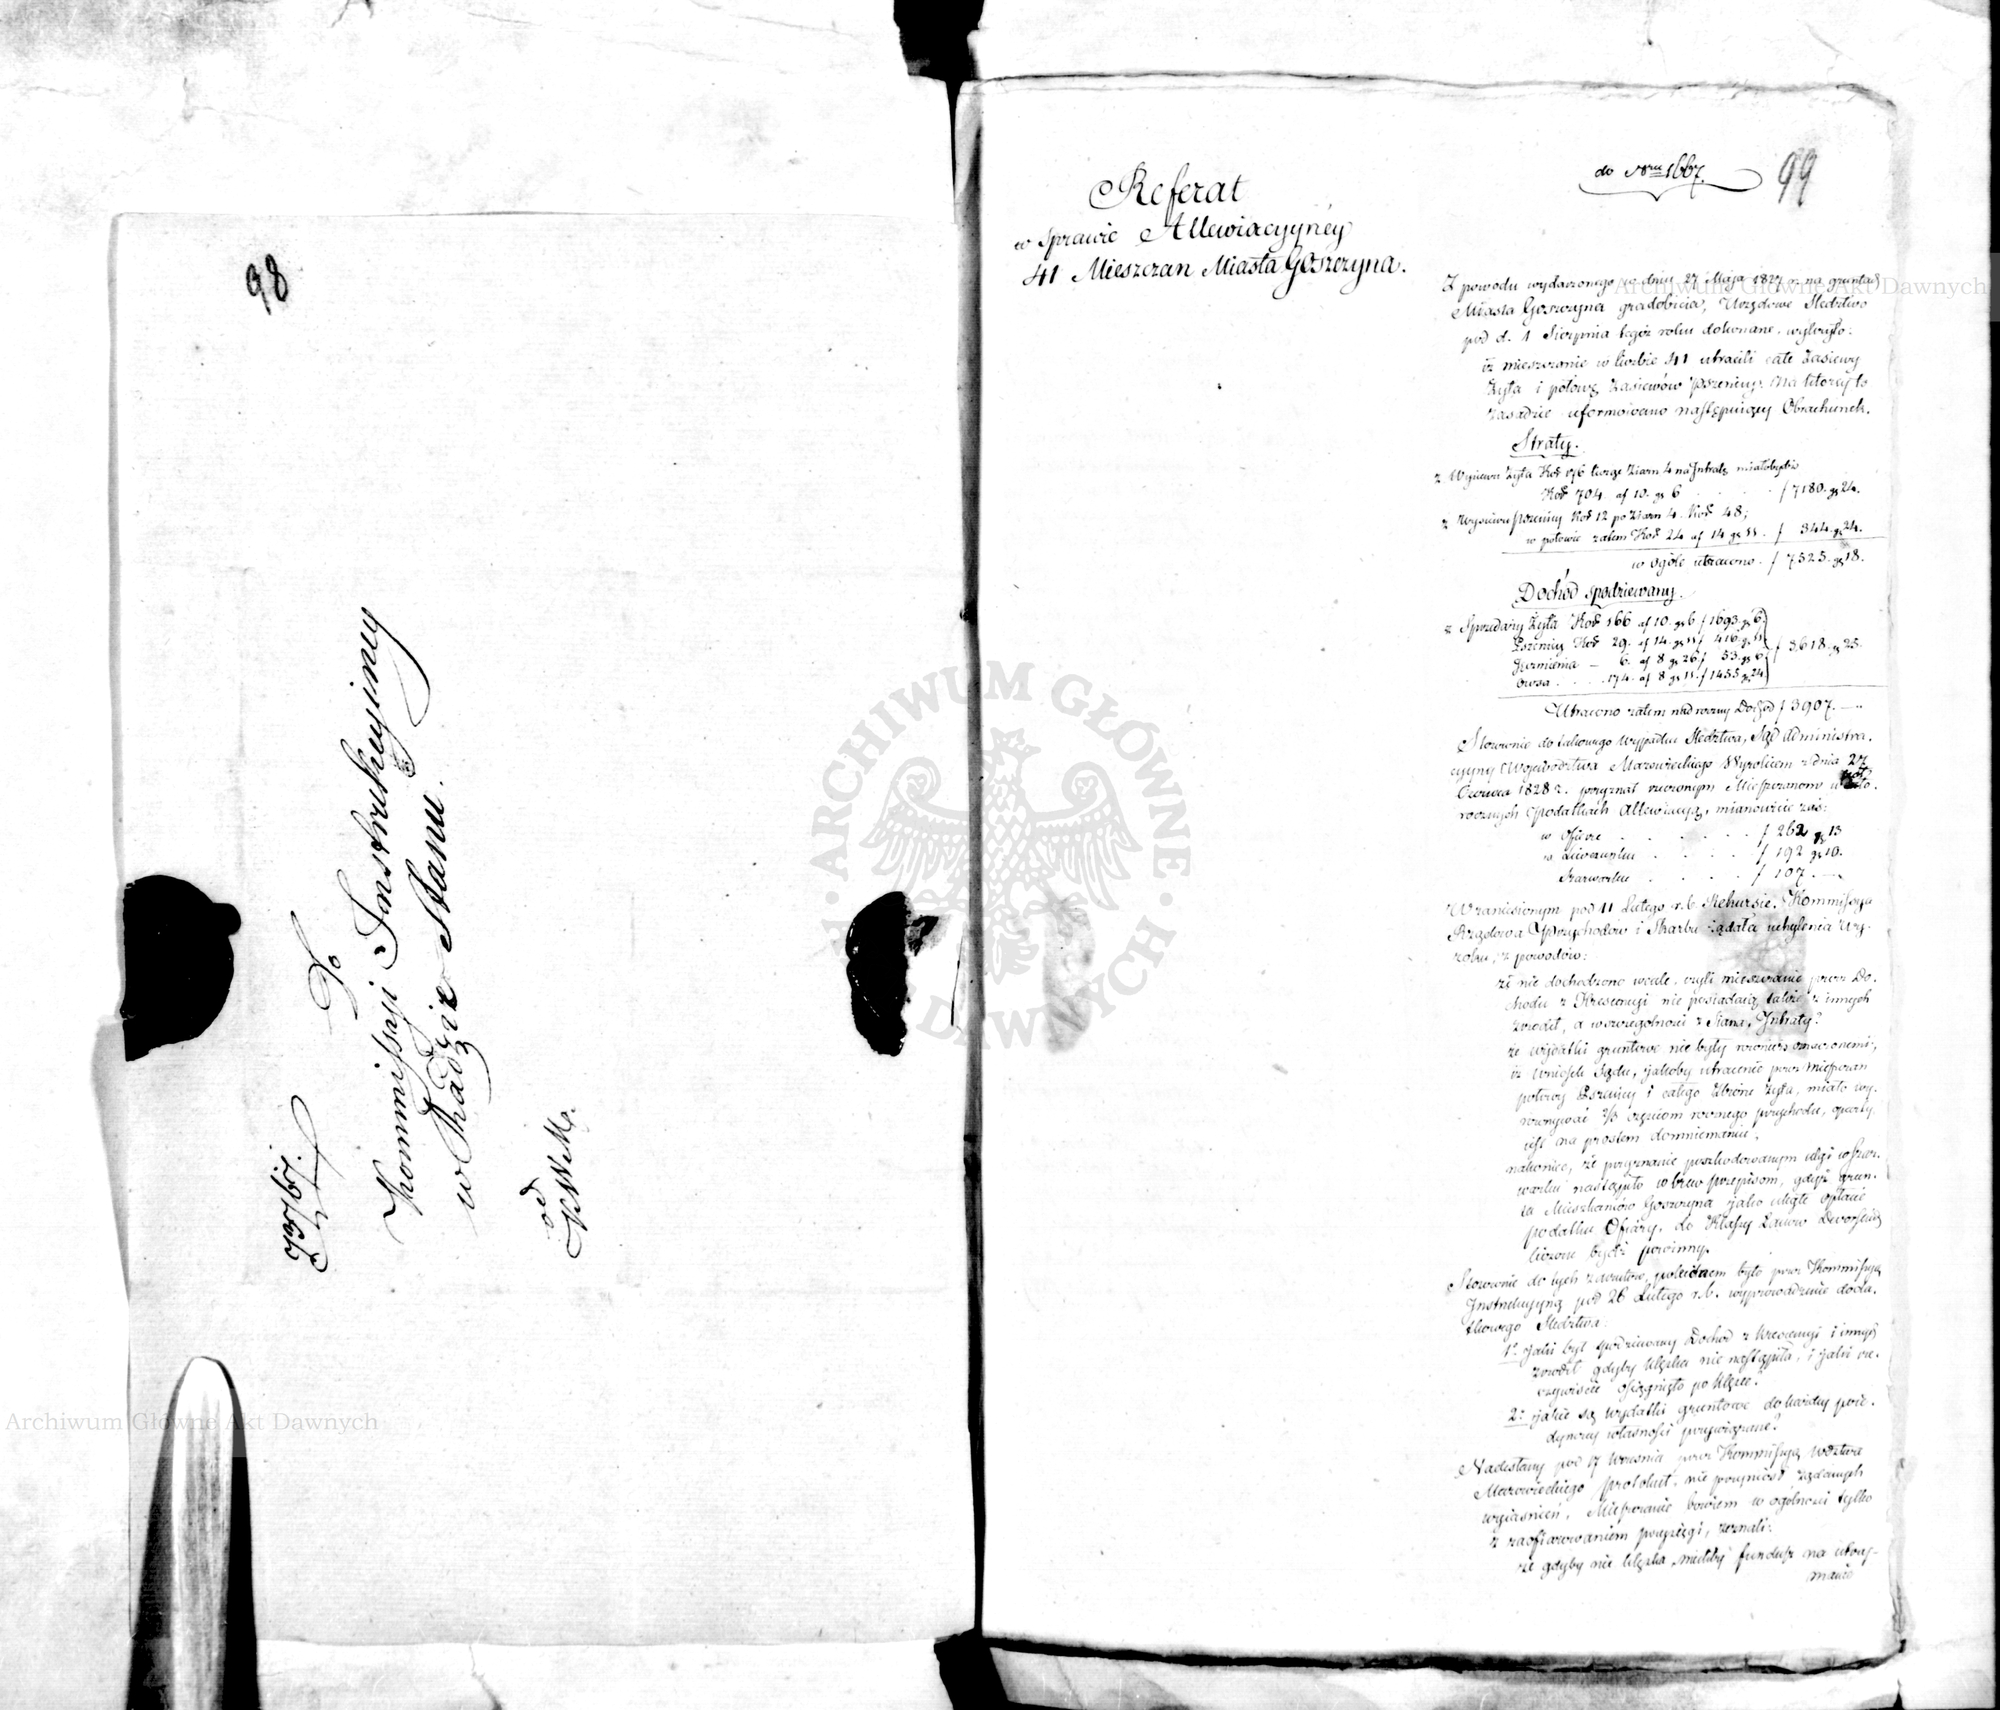 98
73767.
Do
Kommissyi Instrukcyiney
w Radzie Stanu.
od
KWM.
99
do Nru 1667.
Referat
w sprawie Allewiacyyney
41 Mieszczan Miasta Goszczyna.
Z powodu wydarzonego w dniu 27 Maja 1827 r. na gruntach
Miasta Goszczyna gradobicia, Urzędowe Sledztwo
pod d. 1 Sierpnia tegóż roku dokonane, wykryło:
iż mieszczanie w liczbie 41 utracili całe zasiewy
Żyta i połowę zasiewów Pszenicy: Na którey to
zasadzie uformowano następuiący Obrachunek.
Straty.
z Wysiewu Żyta Kor 176 licząc ziarn 4 na Intratę miałobydź
Kor 704. af 10. gr 6 . . . f 7180. gr 24.
z Wysiewu Pszenicy Kor 12 po Ziarn 4. Kor 48;
w połowie zatem Kor 24 af 14 gr 11. f 344. gr 24.
w ogóle utracono. f 7525. gr 18.
Dochód spodziewany.
z Sprzedaży Żyta Kor 166 af 10. gr 6 f 1693. gr 6.
Pszenicy Kor 29. af 14. gr 11 f 416. gr 11 f 3618. gr 25.
Jęczmienia — 6. af 8 gr 26 f 53. gr 6
Owsa . . . 174. af 8 gr 11. f 1455 gr 24
Utracono zatem nad roczny Dochód f 3907. —
Stosownie do takowego wypadku Sledztwa, Sąd Administra.
cyyny Województwa Mazowieckiego Wyrokiem z dnia 27
Czerwca 1828 r. przyznał rzeczonym Mieszczanom w
rocznych Podatkach Allewiacyą, mianowicie zaś:
w Ofierze . . . . . f 262 gr 13
w Liwerunku . . . . f 192 gr 10.
Szarwarku . . . . f 107. —
W zaniesionym pod 11 Lutego r. b. Rekursie, Kommissya
Rządowa Przychodów i Skarbu żądała uchylenia Wy-
roku, z powodów:
że nie dochodzono wcale, czyli mieszczanie prócz Do.
chodu z Krescencyi nie posiadaią także z innych
zrodeł, a wszczególnosci z Siana, Intraty?
że wydatki gruntowe nie były również oznaczonemi,
iż wniosek Sądu, jakoby utracenie przez mieszczan
połowy Pszenicy i całego zbioru Żyta, miało wy-
rownywać 2/3 częściom rocznego przychodu, oparty
jest na prostem domniemaniu,
nakoniec, że przyznanie poszkodowanym ulgi w szar.
warku nastąpiło wbrew przepisom, gdyż grun.
ta Mieszkańców Goszczyna jako uległe opłacie
podatku Ofiary, do Klassy Łanów Dworskich
liczone bydź powinny.
Stosownie do tych zarzutów, poleconem było przez Kommissyą
Instrukcyyną pod 26 Lutego r. b. wyprowadzenie doda.
tkowego Sledztwa:
1o jaki był spodziewany Dochód z Krescencyi i innych
zrodeł gdyby klęska nie nastąpiła, i jaki rze.
czywiście osiągnięto po klęsce?
2o jakie są wydatki gruntowe do każdey poie.
dynczey własności przywiązane?
Nadesłany pod 17 Września przez Kommissyą Wdztwa
Mazowieckiego protokuł, nie przyniósł żądanych
wyiaśnień, Mieszczanie bowiem w ogólności tylko
z zaofiarowaniem przysięgi, zeznali:
że gdyby nie klęska, mieliby fundusz na utrzy-
manie
ARCHIWUM GŁÓWNE AKT DAWNYCH
Archiwum Główne Akt Dawnych
Archiwum Główne Akt Dawnych